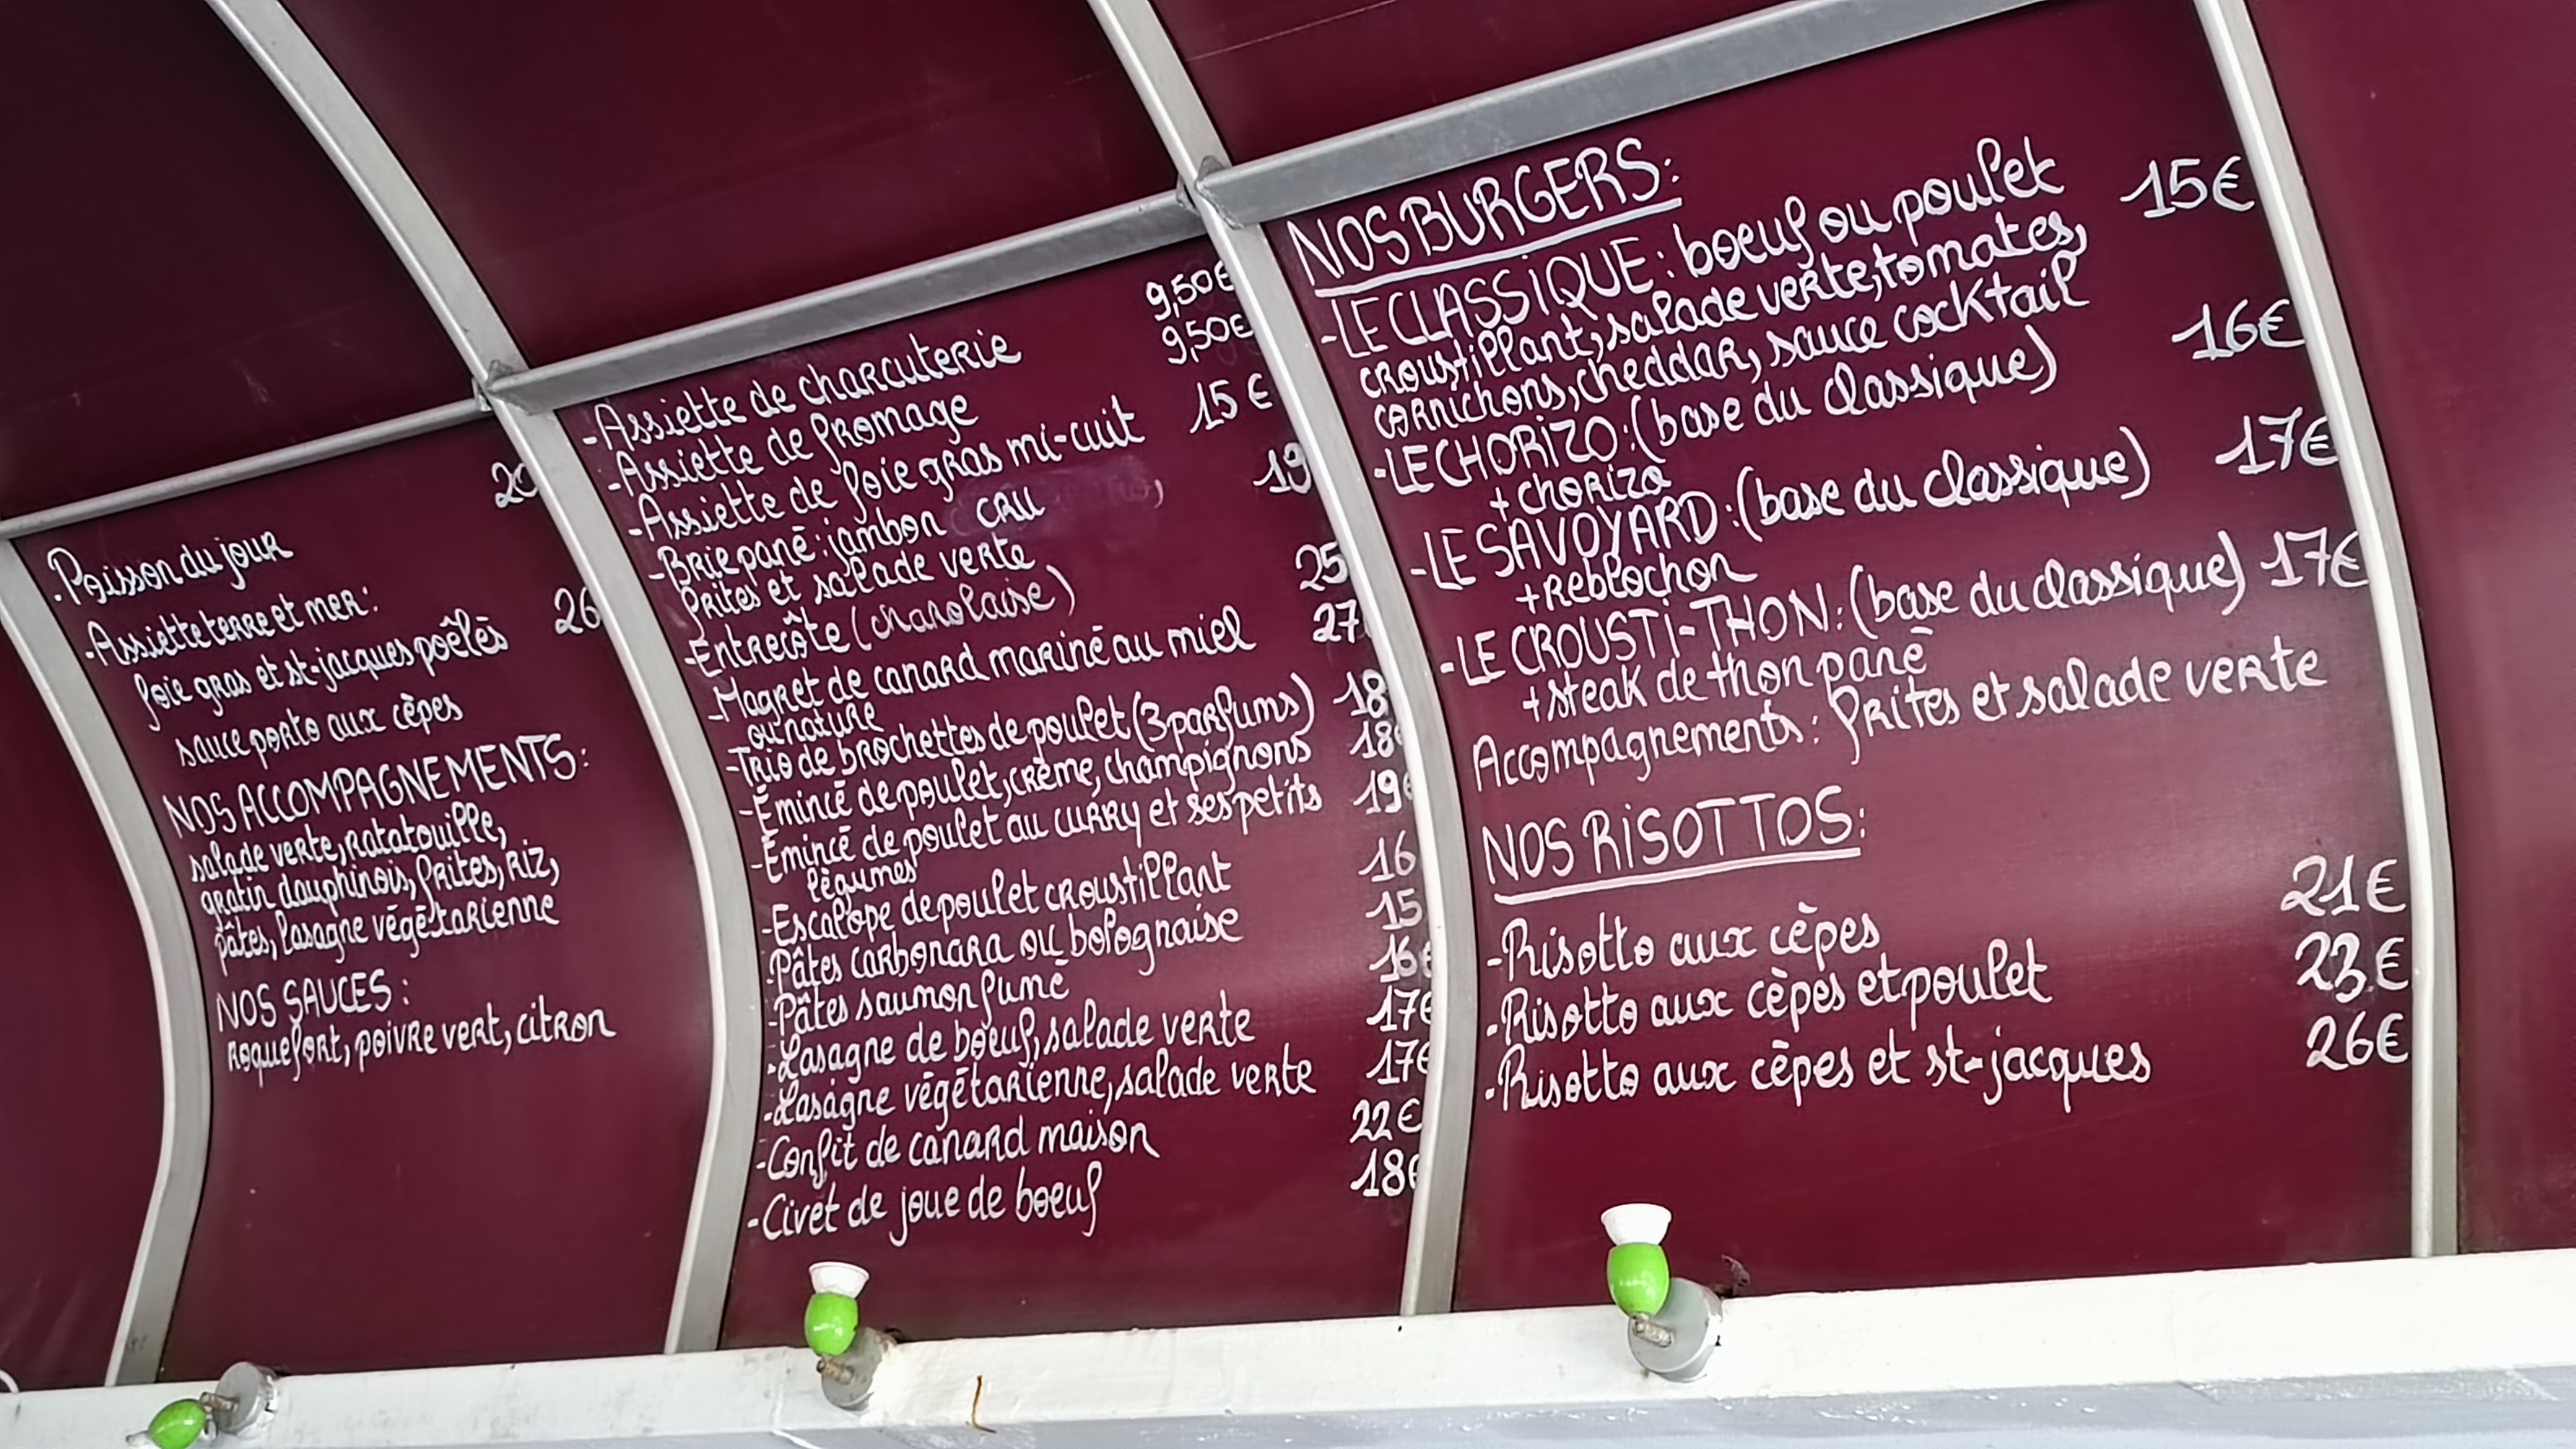 .Poisson du jour 20
-Assiette terre et mer: 26
foie gras et st-jacques poêlés
sauce porto aux cèpes
NOS ACCOMPAGNEMENTS:
salade verte, ratatouille,
gratin dauphinois, frites, riz,
pâtes, lasagne végétarienne
NOS SAUCES:
roquefort, poivre vert, citron
-Assiette de charcuterie 9,50€
-Assiette de fromage 9,50€
-Assiette de foie gras mi-cuit 15€
-Brie pané: jambon cru 19
frites et salade verte
-Entrecôte (charolaise) 25
-Magret de canard mariné au miel 27
ou nature
-Trio de brochettes de poulet (3 parfums) 18
-Émincé de poulet, crème, champignons 18€
-Émincé de poulet au curry et ses petits 19€
légumes
-Escalope de poulet croustillant 16
-Pâtes carbonara ou bolognaise 15
-Pâtes saumon fumé 16€
-Lasagne de bœuf, salade verte 17€
-Lasagne végétarienne, salade verte 17€
-Confit de canard maison 22€
-Civet de joue de bœuf 18€
NOS BURGERS:
-LE CLASSiQUE: bœuf ou poulet 15€
croustillant, salade verte, tomates,
cornichons, cheddar, sauce cocktail
-LE CHORiZO: (base du classique) 16€
+ chorizo
-LE SAVOYARD: (base du classique) 17€
+ reblochon
-LE CROUSTi-THON: (base du classique) 17€
+ steak de thon pané
Accompagnements: frites et salade verte
NOS RiSOTTOS:
-Risotto aux cèpes 21€
-Risotto aux cèpes et poulet 23€
-Risotto aux cèpes et st-jacques 26€